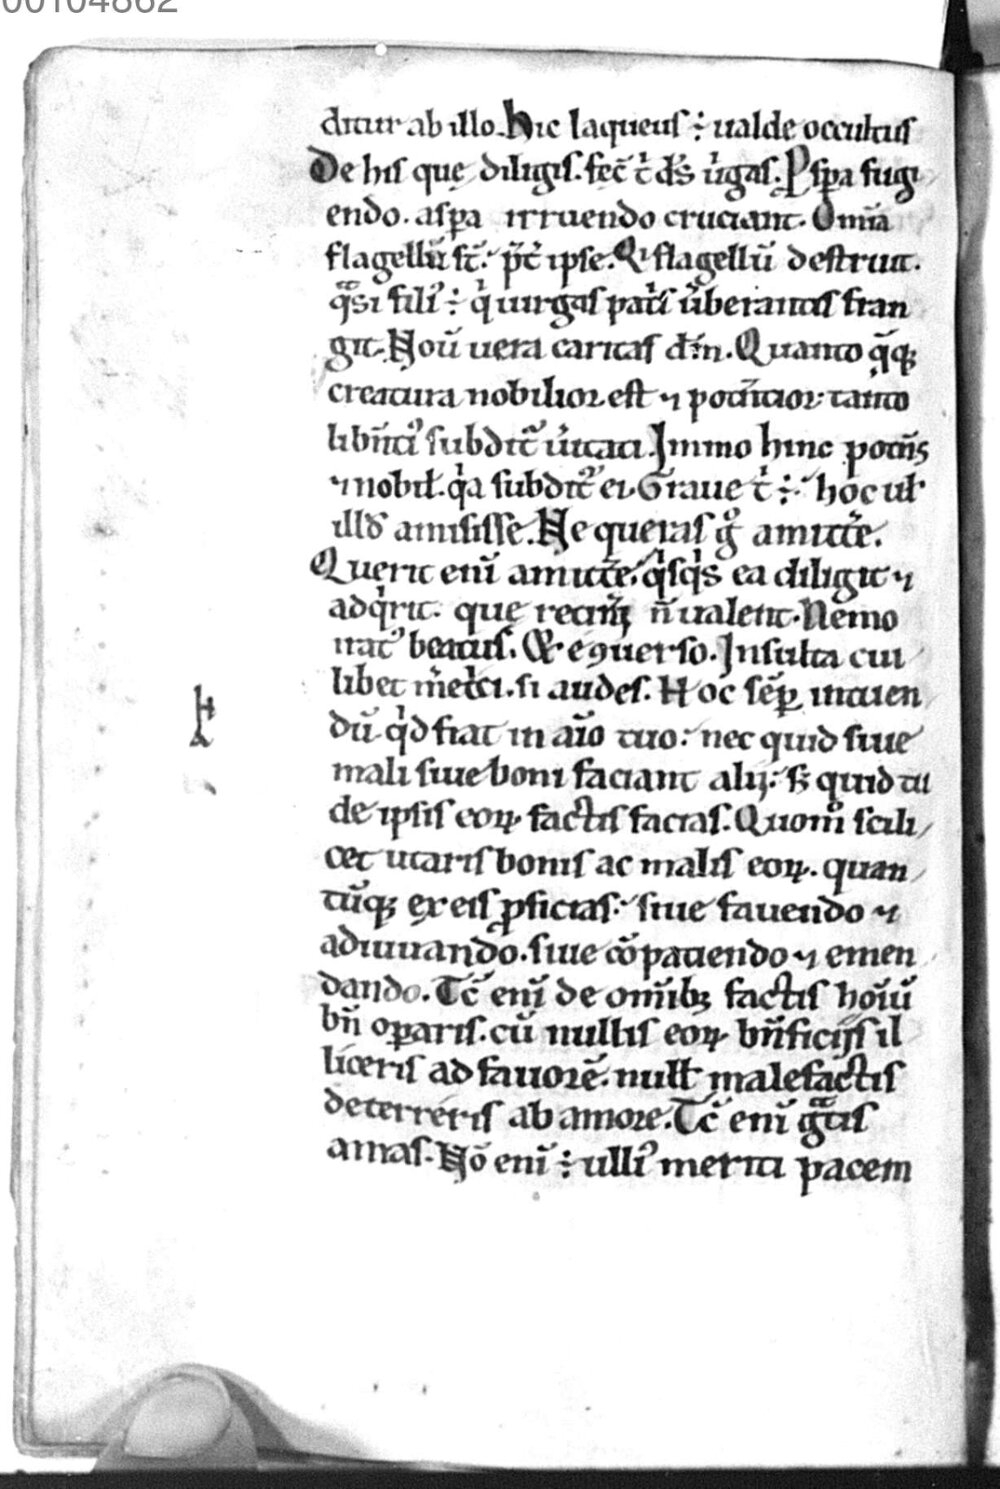 00104862
ditur ab illo. Hic laqueus ÷ ualde occultus
De his que diligis. fec̄ t͛ ds̄ u͛gas. Psp̱a fugi
endo. asp̱a irruendo cruciant. Om̄ia
flagellū st̄. p̄t͛ ipse. Qi flagellū destruit.
q̄si fili᾿ ÷ qͥ uirgas pat͛s u͛berantis fran
git. Nou̅ uera caritas
creatura nobilior est ⁊ potentior tanto
subdit᷑ u͛itati. Immo hinc
⁊ nobil̵. qͥa subdit᷑ ei. Graue t͛ ÷ hoc ul̵
illd̅ amisisse. Ne queras gͦ amitt͛e.
Querit eni̅ amitt͛e. qͥsqͥs ea diligit ⁊
adqͥrit. que n̄ ualent. Nemo
irat᾿ beatus. & e ꝯuerso. Insulta cui
libet si audes. Hoc sēp̱ intuen
dū. qͥd fiat in aīo tuo: nec quid siue
mali siue boni faciant alij: s; quid tu
de ipsis eoꝝ factis facias. Quom̊ scili
cet utaris bonis ac malis eoꝝ. quan
tūq; ex eis ꝓficias. siue fauendo ⁊
adiuuando. siue cōpatiendo ⁊ emen
dando. Tc̄ eni̅ de omīb; factis hoīū
bn̄ op̱aris. cū nullis eoꝝ bn̄ficijs il
liceris ad fauorē. null̵ malefactis
deterreris ab amore. Tc̄ eni̅ gͣtis
amas. Nō eni̅ ÷ ulli᾿ meriti pacem